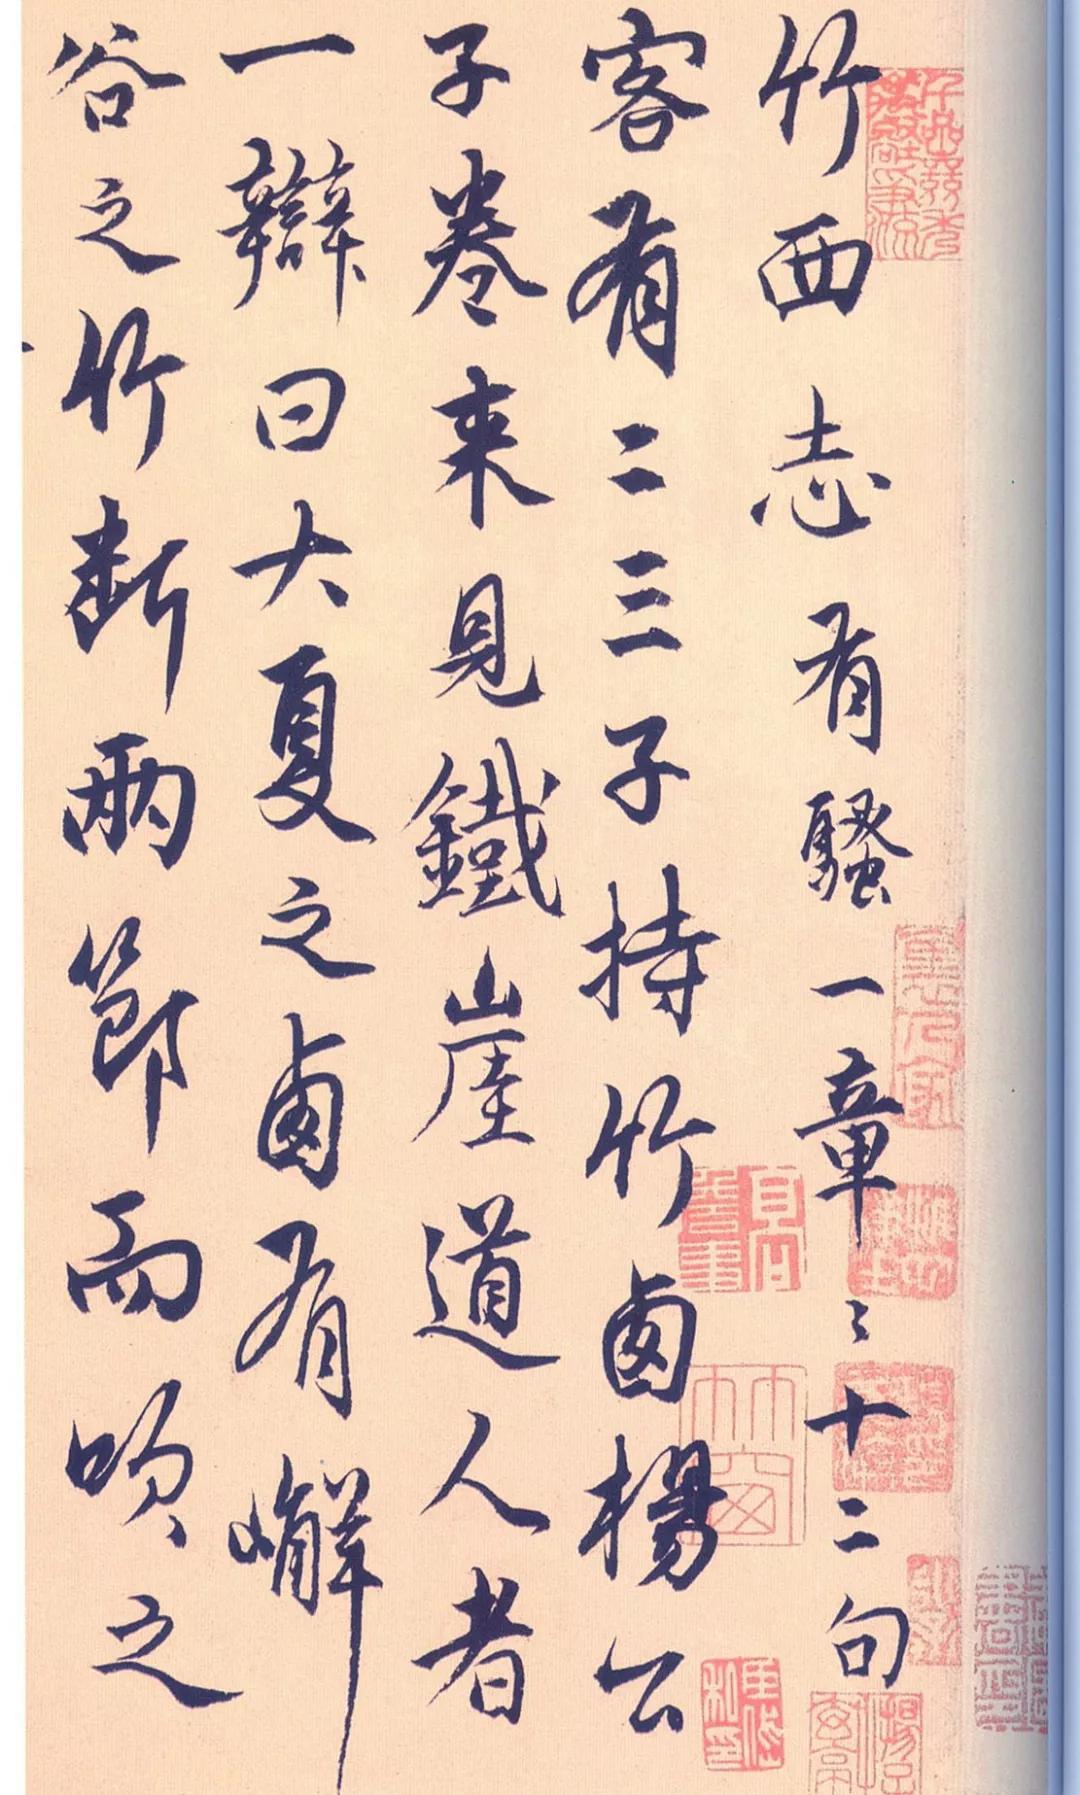 竹西志有騷一章〻十二句
客有二三子持竹卤楊公
子卷来見鐵崖道人者
一辯曰大夏之卤有嶰
谷之竹斷兩節而吹之